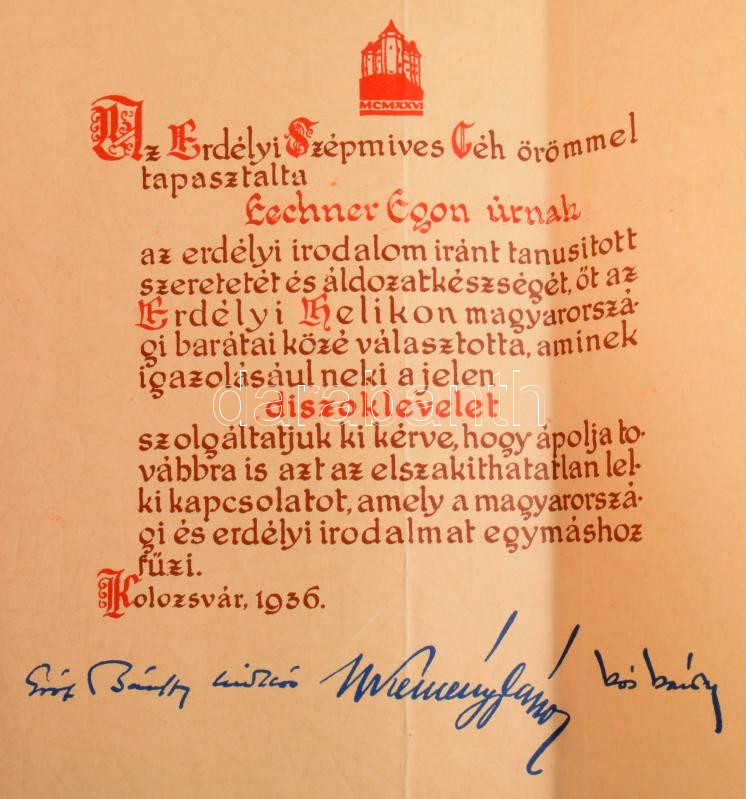 MCMXXVI
Az Erdélyi Szépmives Céh örömmel
tapasztalta
Lechner Egon úrnak
az erdélyi irodalom iránt tanusitott
szeretetét és áldozatkészségét, őt az
Erdélyi Helikon magyarorszá-
gi barátai közé választotta, aminek
igazolásául neki a jelen
diszoklevelet
szolgáltatjuk ki kérve, hogy ápolja to-
vábbra is azt az elszakithatatlan lel-
ki kapcsolatot, amely a magyarorszá-
gi és erdélyi irodalmat egymáshoz
fűzi.
Kolozsvár, 1936.
Gróf Bánffy Miklós Kemény János Kós Károly
darabanth